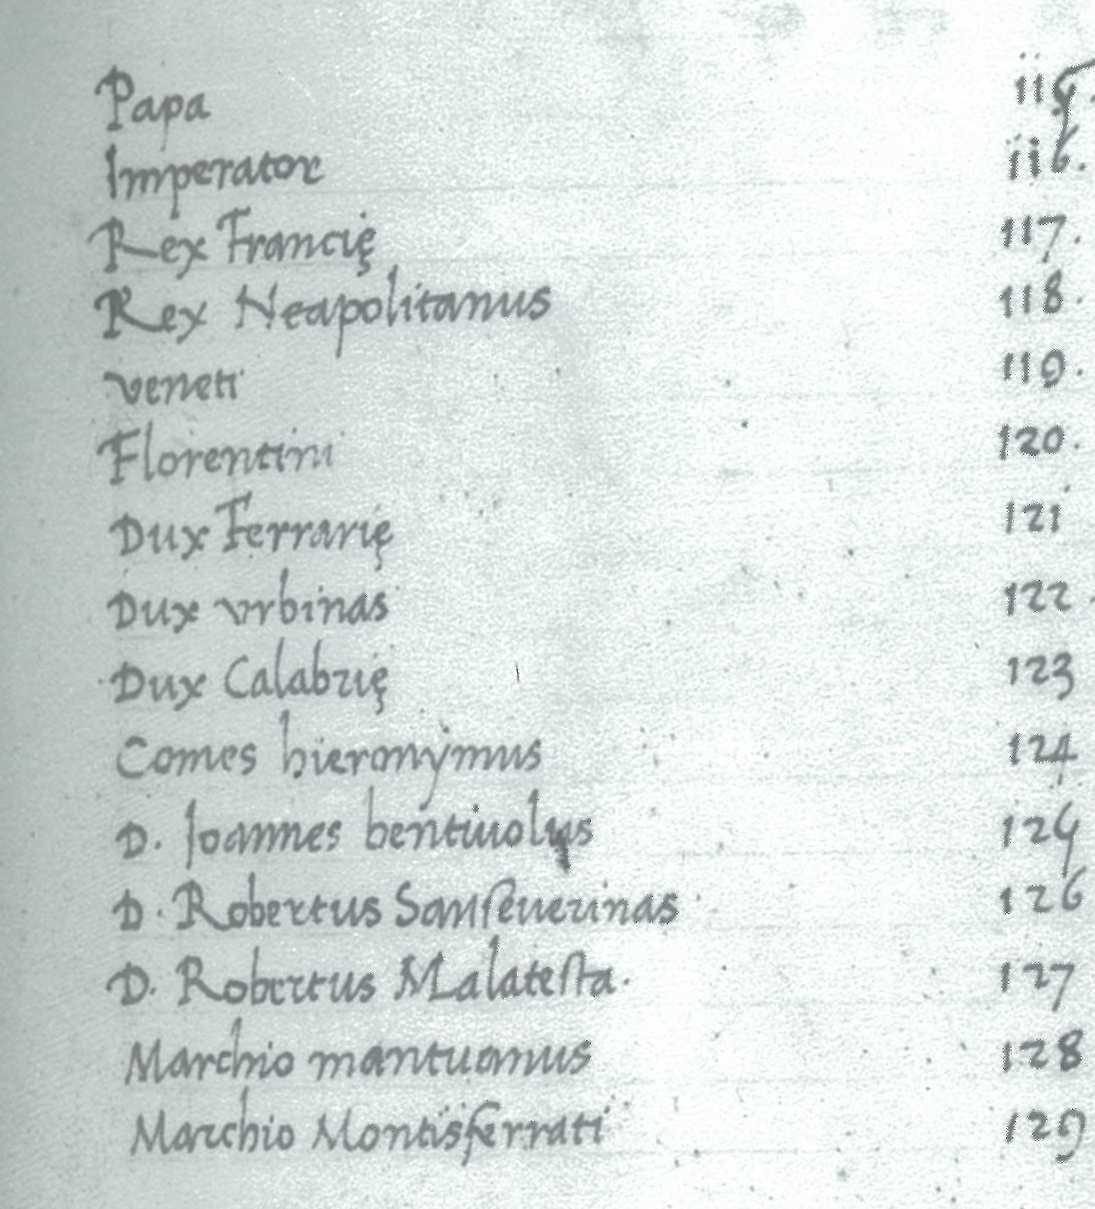 Papa 115.
Imperator 116.
Rex Francię 117.
Rex Neapolitanus 118.
veneti 119.
Florentini 120.
Dux Ferrarię 121
Dux vrbinas 122.
Dux Calabrię 123
Comes hieronymus 124
D. Joannes bentiuolus 125
D. Robertus Sanſeuerinas 126
D. Robertus Malateſta. 127
Marchio mantuanus 128
Marchio Montisferrati 129